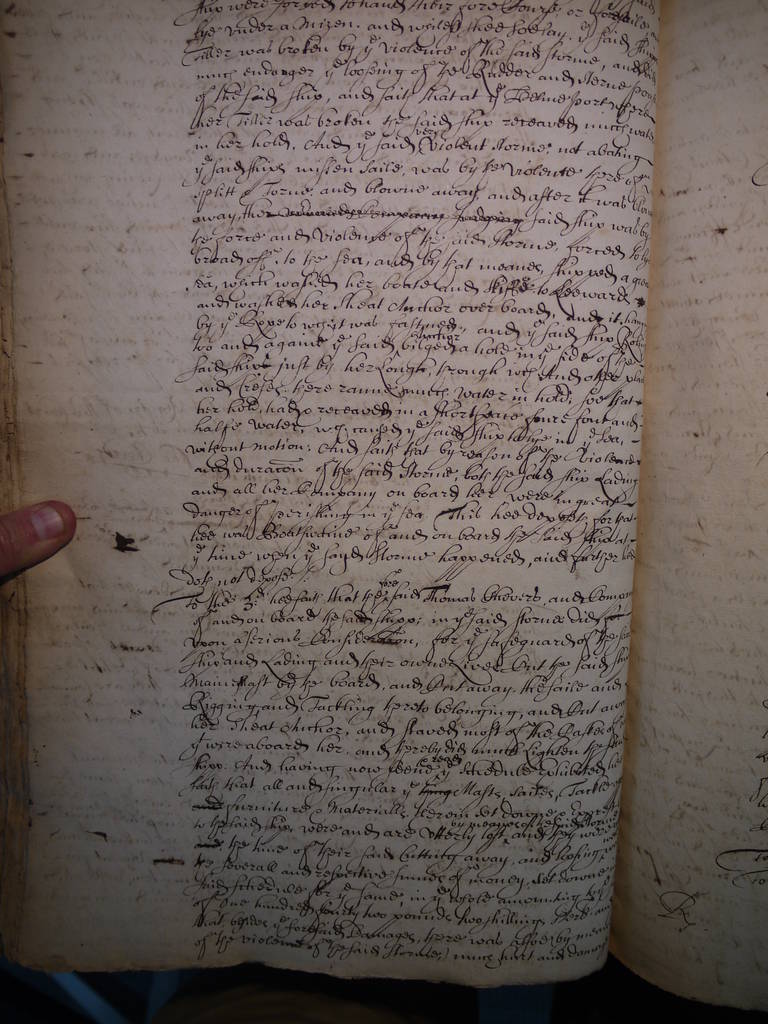 ship were forced to hand their fore Course or foresaile
lye under a Mizen. and whilest shee soe lay. ye said ship
Tiller was broken by ye violence of the said storme, and did
much endanger ye loosing of the Rudder and sterne post
of the said ship, and saith that at ye Helme port where
her Tiller was broken the said ship receaved much water
in her hold. And ye said very violent storme, not abating
ye said ships missen saile, was by the violence thereof
splitt & Torne, and blowne away, and after it was blowne
away, the said ship was by
the force and violence of the said storme, forced to lye
broad off, to the sea, and by that meanes, shipped a great
sea, which washed her boate and skiffe to Leeward,
and washed her sheat Anchor over board, And it hanging
by ye Rope to which it was fastned, and ye said ship
too and againe ye said Anchor bilged a hole in ye side of the
said ship just by her through wch And other places
and there rann much water in hold, soe that
her hold had receaved in a short space foure foot and
halfe water, wch caused ye said ship to lye in ye sea,
without motion; And saith that by reason of the violence
and duracon of the said storme, both the said ship Lading
and all her Company on board her were in great
danger of perishing in ye sea This hee deposeth for that
hee was Boatswaine of and on board the said ship at
ye time when ye said storme happened, and further hee
doth not depose./
To the 3d. hee saith that the fore said Thomas and Company
of and on board the said shipp, in ye said storme did
upon a serious Consideration, for ye safeguard of the said
ship and Lading and their owne lives Cut the said ships
Mainmast by the board, and Cut away the saile and
Rigging and Tackling thereto belonging, and Cut away
her sheat Anchor, and staved most of the Caskes of
yt were aboard her, and thereby did much Lighten the said
shipp. And having now seene & ye schedule exhibited hee
saith that all and singular ye Masts, sailes, Tackle
furniture & Materialls therein set downe &
to the said ship, were and are utterly lost by meanes of the said storme and they were
at the time of their said Cutting away, and loosing
the severall and respective summes of money, set downe in ye
said schedule for ye same, in ye whole amounting to ye
of One hundred fourty two pounds two shillings, And
that besides ye foresaid Damages, there was alsoe by meanes
of the violence of the said storme, much hurt and damage